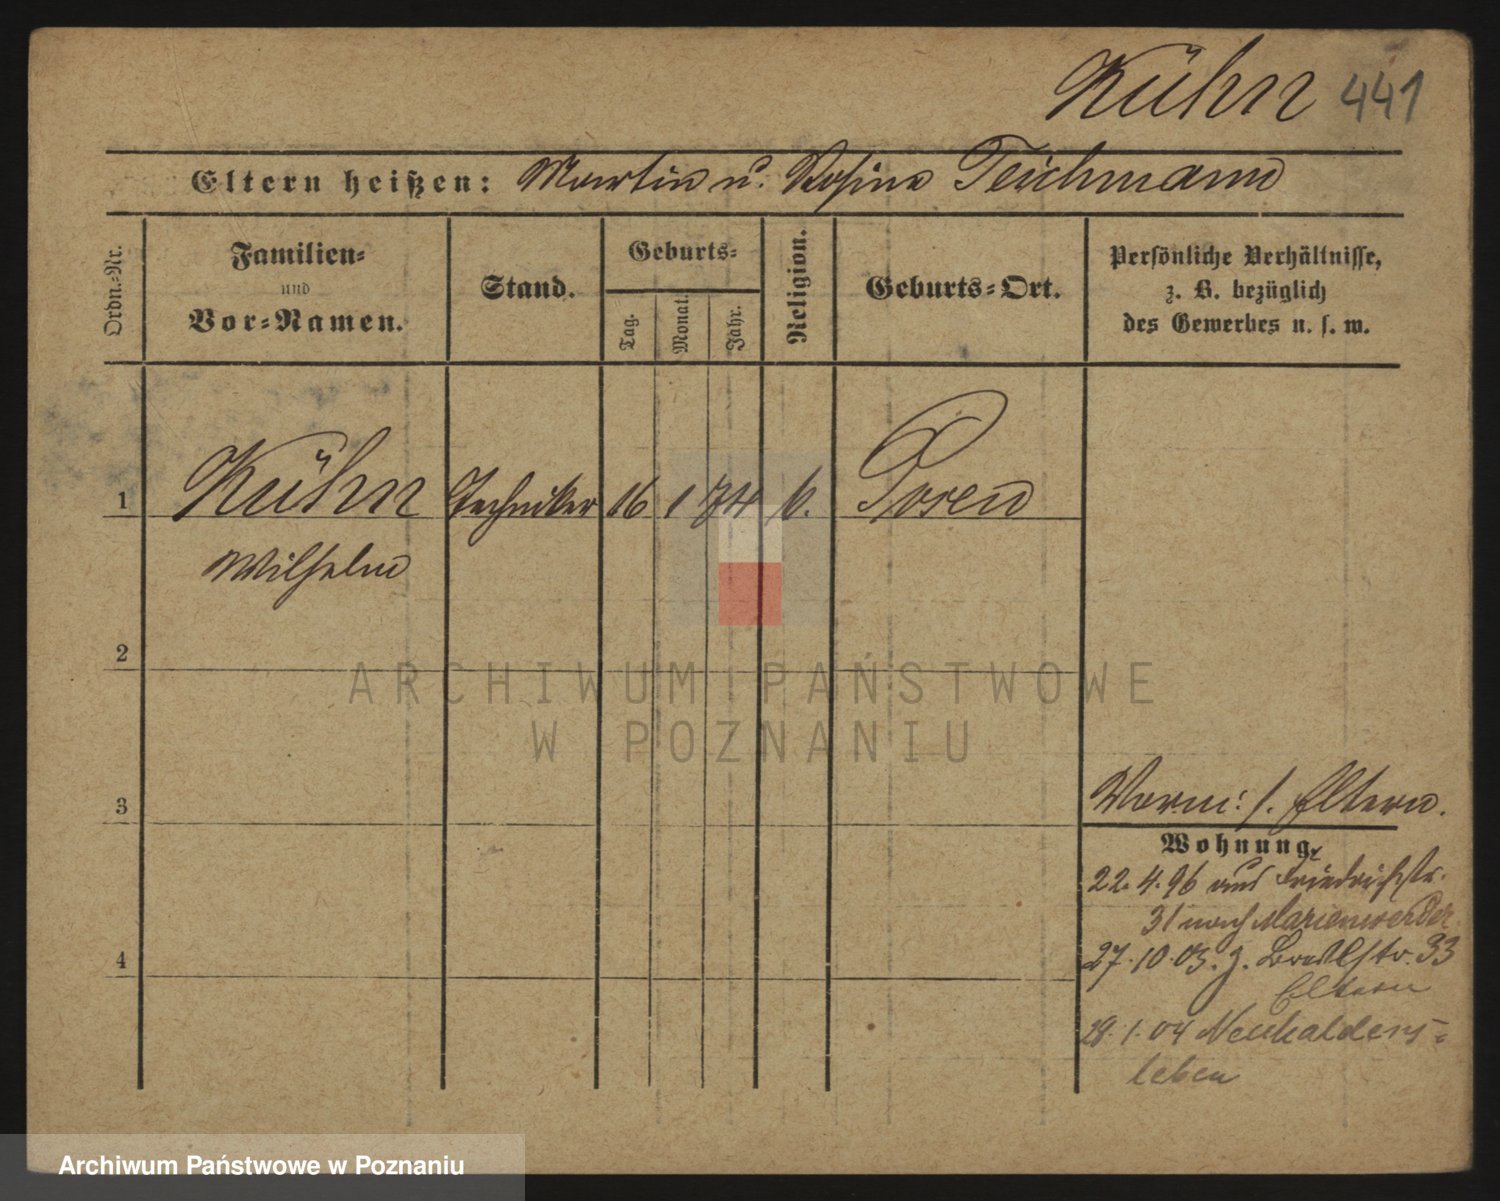 Kühn 441
Eltern heißen: Martin u. Rosina Teichmann
Ordn.=Nr.
Familien=
und
Vor=Namen.
Stand.
Geburts=
Tag.
Monat.
Jahr.
Religion.
Geburts=Ort.
Persönliche Verhältnisse,
z. B. bezüglich
des Gewerbes u. s. w.
1 Kühn Techniker 16 1 74 k. Posen
Wilhelm
2
3
4
ARCHIWUM PAŃSTWOWE
W POZNANIU
Eltern.
Wohnung
22.4.96 aus Friedrichstr.
31 nach Marienwerder
27.10.03. z. 33
Eltern
28.1.04 Neuhaldens=
leben
Archiwum Państwowe w Poznaniu